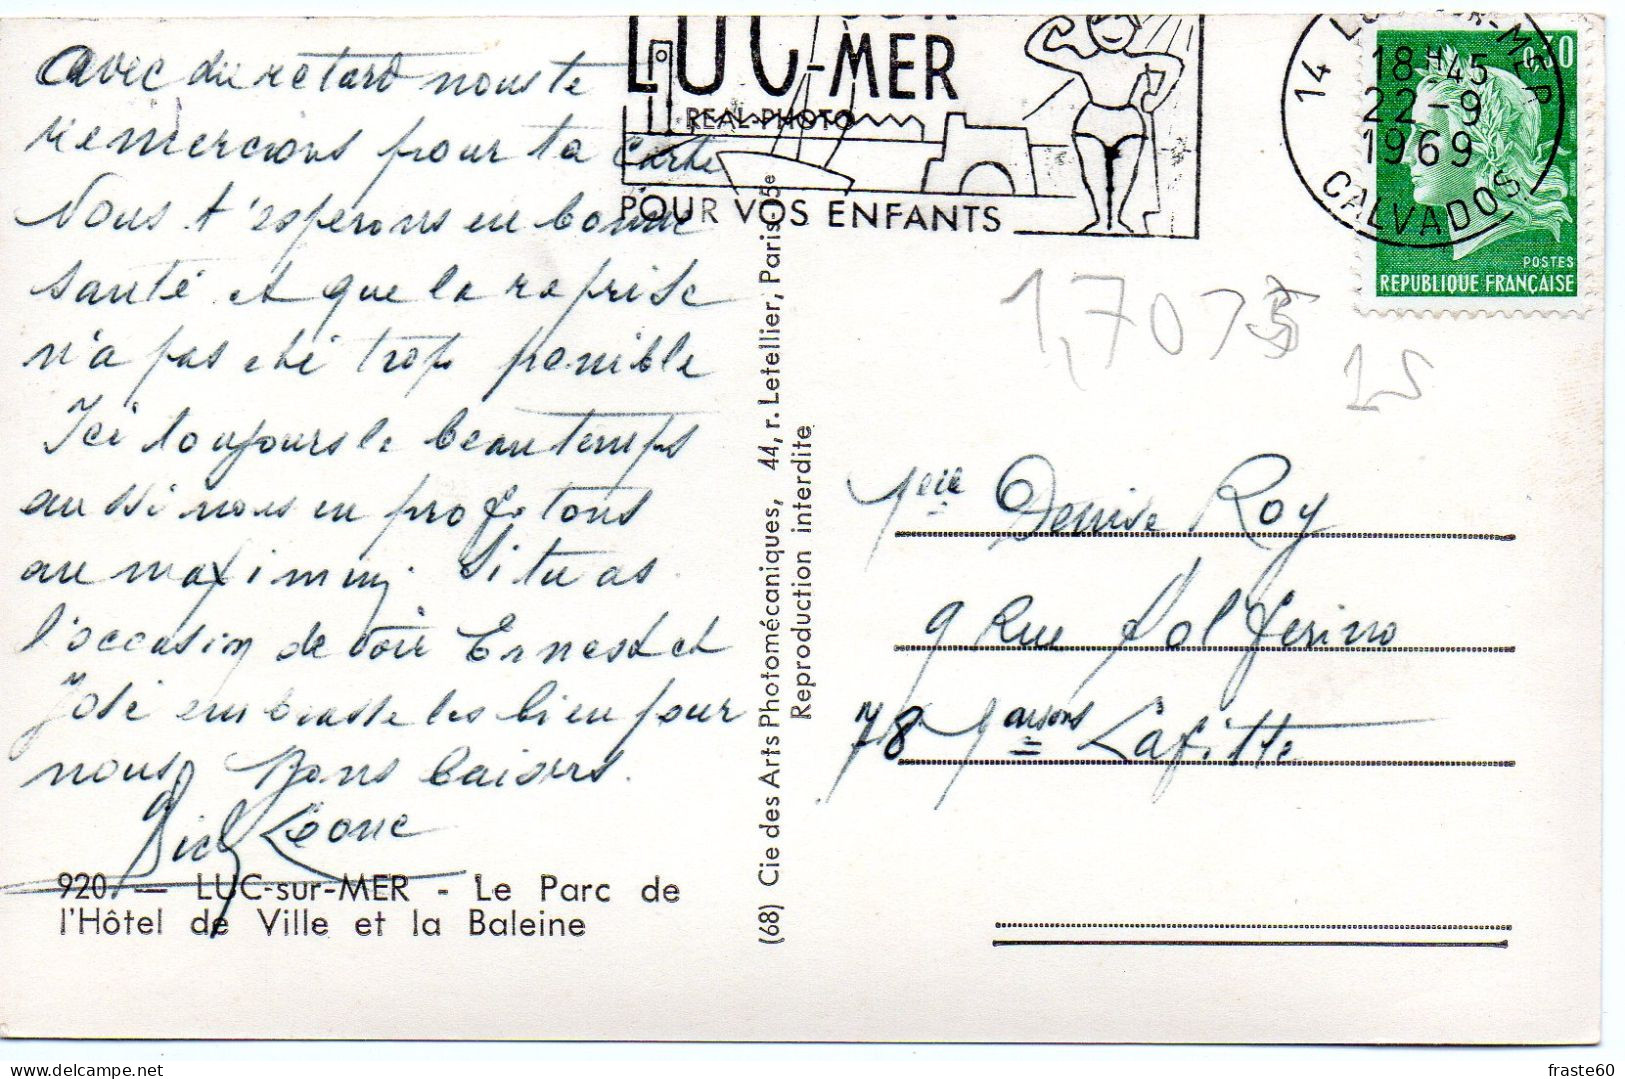 avec du retard nous te
remercions pour ta carte
Nous t'esperons en bonne
santé et que la reprise
n'a pas été trop penible
Ici toujours le beau temps
aussi nous en profitons
au maximum. Si tu as
l'occasion de voir Ernest et
José embrasse les bien pour
nous Bons baisers.
Léone
920 — LUC-sur-MER - Le Parc de
l'Hôtel de Ville et la Baleine
LUC-SUR-MER
REAL-PHOTO
POUR VOS ENFANTS
(68) Cie des Arts Photomécaniques, 44, r. Letellier, Paris-15e
Reproduction interdite
14 LUC-SUR-MER
18H45
22-9
1969
CALVADOS
0,30
POSTES
REPUBLIQUE FRANÇAISE
1,70
25
Melle Denise Roy
9 Rue Solferino
78 Maisons Lafitte
fraste60